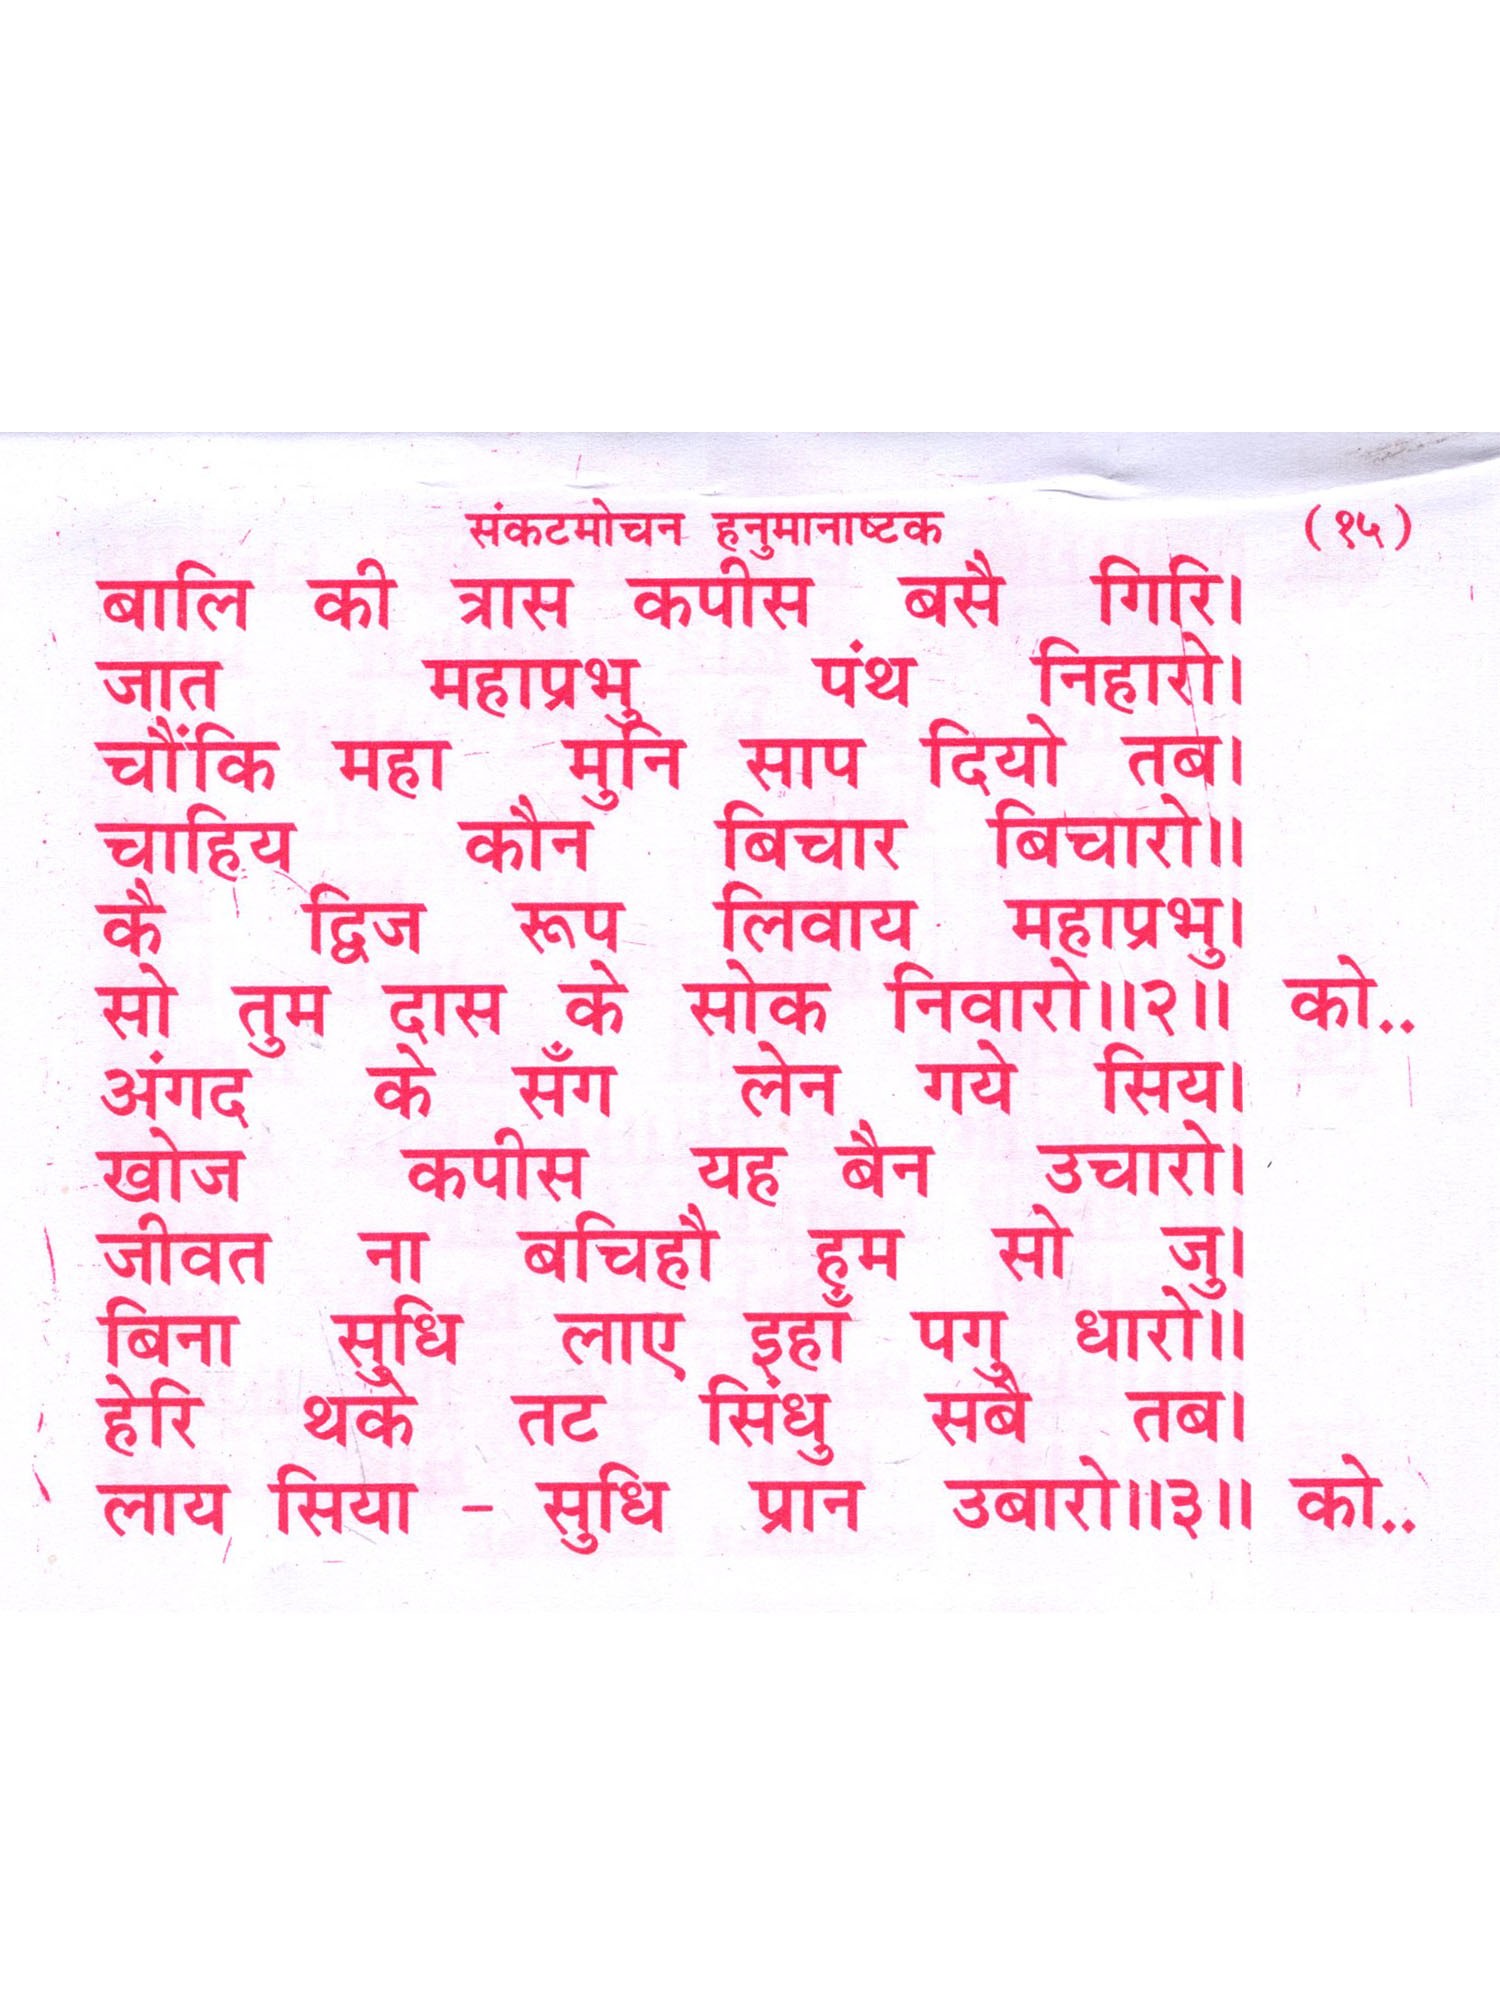 संकटमोचन हनुमानाष्टक (१५)
बालि की त्रास कपीस बसै गिरि।
जात महाप्रभु पंथ निहारो।
चौंकि महा मुनि साप दियो तब।
चाहिय कौन बिचार बिचारो॥
कै द्विज रूप लिवाय महाप्रभु।
सो तुम दास के सोक निवारो॥२॥ को..
अंगद के सँग लेन गये सिय।
खोज कपीस यह बैन उचारो।
जीवत ना बचिहौ हम सो जु।
बिना सुधि लाए इहाँ पगु धारो॥
हेरि थके तट सिंधु सबै तब।
लाय सिया - सुधि प्रान उबारो॥३॥ को..